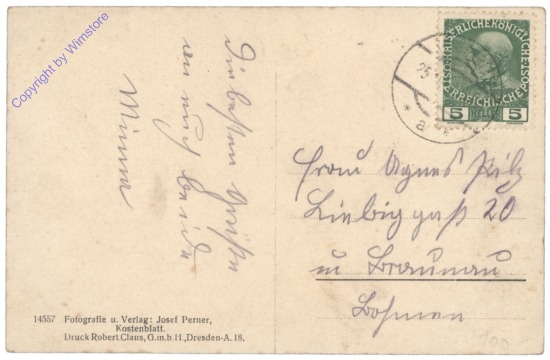 Copyright by Wimstore
Die besten Grüße
an euch beide
Minna
KAISERLICHE KÖNIGLICHE
ÖSTERREICHISCHE POST
5 HELLER 5
25
* a
Frau Agnes Pilz
Liebiggaß 20
in Braunau
Bohmen
14557 Fotografie u. Verlag: Josef Perner,
Kostenblatt.
Druck Robert Claus, G.m.b.H., Dresden-A. 18.